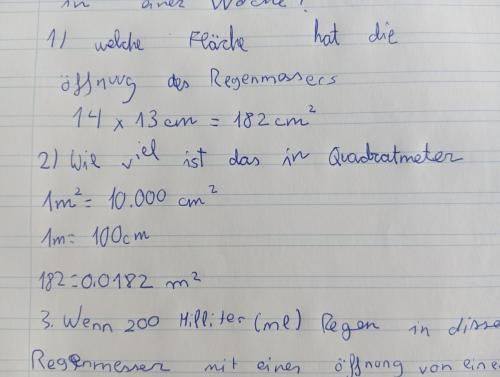 in einer Woche?
1) welche Fläche hat die
öffnung des Regenmessers
14 x 13 cm = 182 cm²
2) Wie viel ist das in Quadratmeter
1m² = 10.000 cm²
1m = 100cm
182 = 0.0182 m²
3. Wenn 200 Milliter (ml) Regen in
Regenmesser mit einer öffnung von